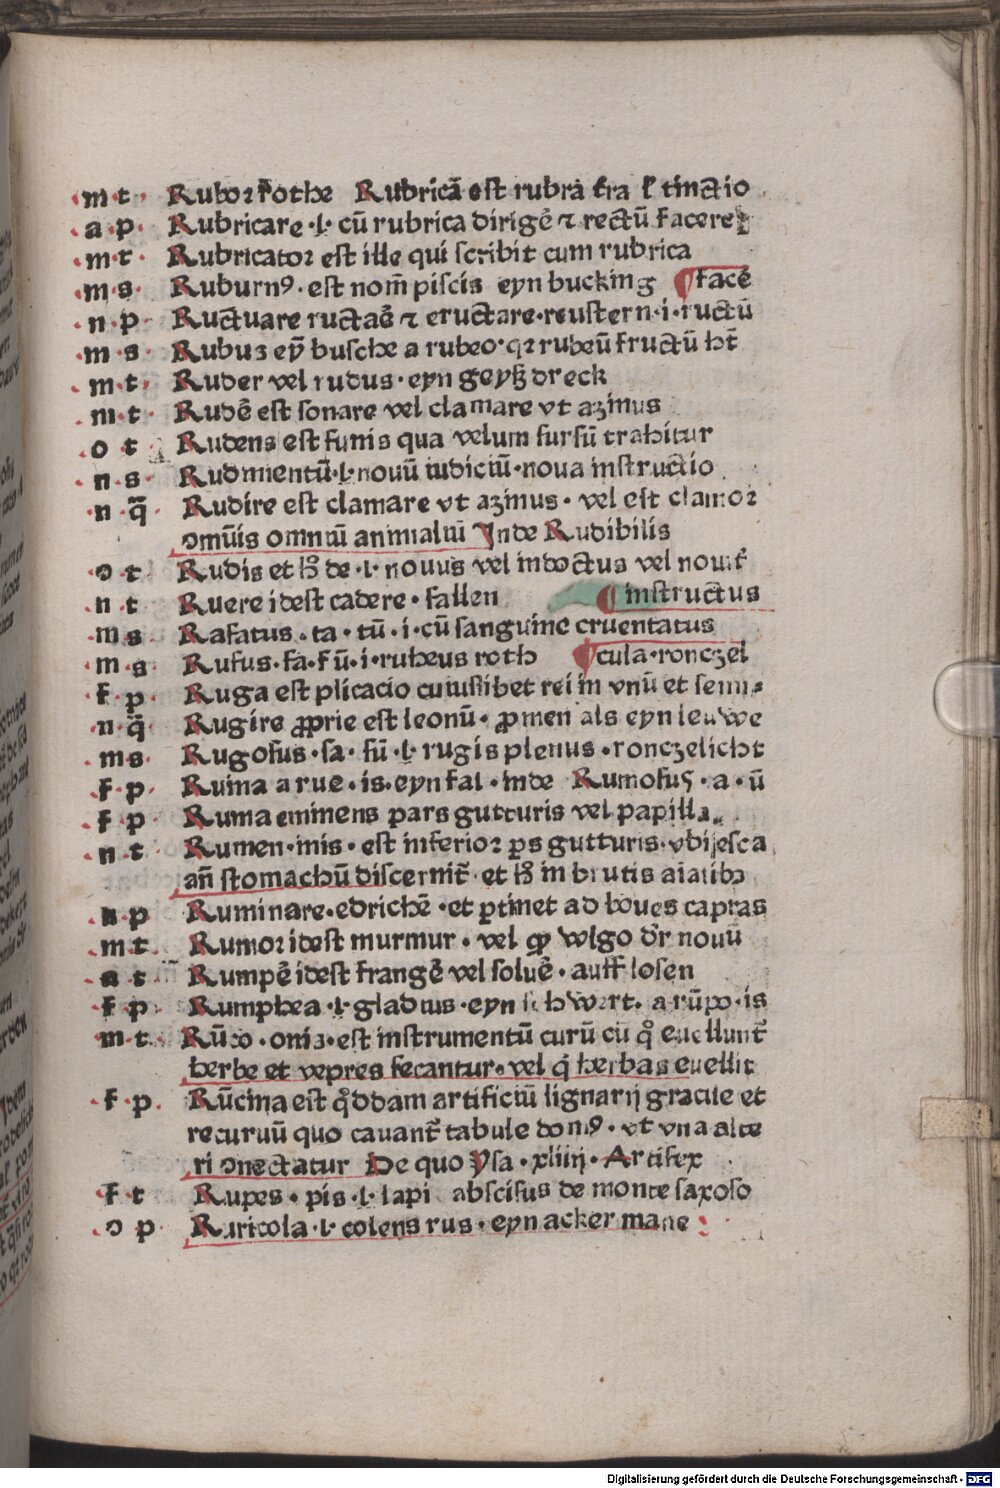 ·m·t· Rubor rothe Rubricā est rubra t̄ra ł tinctio
·a·p· Rubricare ·l· cū rubrica dirigē ⁊ rectū facere
·m·t· Rubricator est ille qui scribit cum rubrica
·m·s· Ruburnꝰ · est nom̄ piscis eyn bucking ¶ facē
·n·p· Ructuare ructaē ⁊ eructare · reustern · i · ructū
·m·s· Rubus eȳ busche a rubeo · qꝛ rubeū fructū ht̄
·m·t· Ruder vel rudus · eyn geyß dreck
·m·t· Rudē est sonare vel clamare vt azinus
·o t· Rudens est funis qua velum sursū trahitur
·n·s· Rudimentū ·l· nouū iudiciū · noua instructio
·n·q̄· Rudire est clamare vt azinus · vel est clamor
ↄmūis omniū animaliū Inde Rudibilis
·ↄ t· Rudis et hꝭ de ·l· nouus vel indoctus vel nouit̄
·n t· Ruere idest cadere · fallen ¶ instructus
·m s· Rafatus · ta · tū · i · cū sanguine cruentatus
·m·s Rufus · fa · fū · i · rubeus roth ¶ cula · ronczel
·f·p· Ruga est plicacio cuiuslibet rei in vnū et semi⸗
·n·q̄· Rugire ꝓprie est leonū · ꝓmen als eyn leuwe
·m s· Rugosus · sa · sū ·l· rugis plenus · ronczelicht
·f·p· Ruina a rue · is · eyn fal · inde Rumosus · a · ū
·f·p Ruma eminens pars gutturis vel papilla
·n·t Rumen · inis · est inferior ꝑs gutturis · vbi esca
an̄ stomachū discernit̄ · et hꝭ in brutis aīalibꝫ
·n·p Ruminare · edrichē · et ꝑtinet ad boues capras
·m t· Rumor idest murmur · vel ꝙ wlgo dr̄ nouū
·a t· Rumpē idest frangē vel soluē · auff losen
·f p· Rumphea ·l· gladius · eyn schwert · a rūpo · is
m·t· Rūco · onis · est instrumentū curū cū q̊ euellunt̄
herbe et vepres secantur · vel q̇ herbas euellit
·f·p· Rūcina est q̊ddam artificiū lignarij gracile et
recuruū quo cauant̄ tabule domꝰ · vt vna alte
ri ↄnectatur De quo Ysa · xliiij · Artifex
·f t Rupes · pis ·l· lapi abscisus de monte saxoso
·ↄ p· Ruricola ·l· colens rus · eyn acker mane
Digitalisierung gefördert durch die Deutsche Forschungsgemeinschaft - DFG